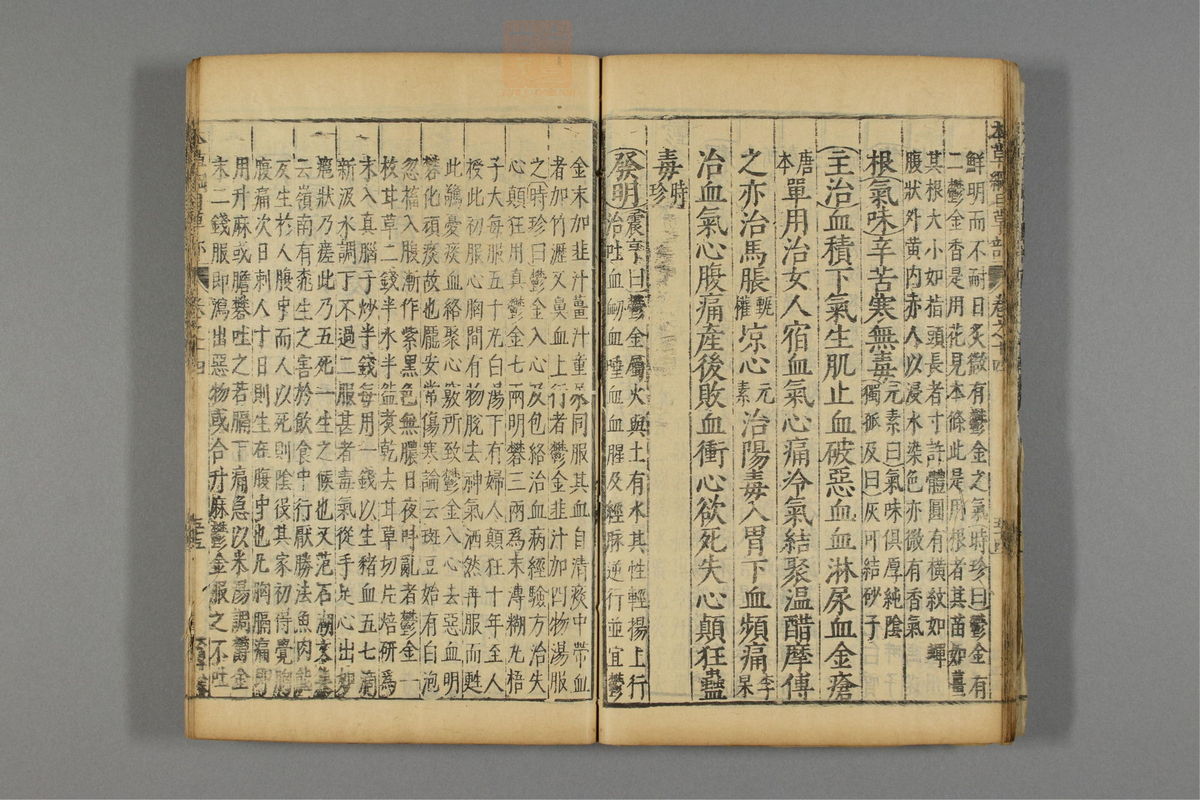 本草綱目草部 卷之十四 五十四
鮮明而不耐日炙微有鬱金之氣時珍曰鬱金有
二鬱金香是用花見本條此是用根者其苗如薑
其根大小如指頭長者寸許體圓有橫紋如蟬
腹狀外黃內赤人以浸水染色亦微有香氣
根氣味辛苦寒無毒元素曰氣味俱厚純陰獨孤及曰灰可結砂子
主治血積下氣生肌止血破惡血血淋尿血金瘡
唐本單用治女人宿血氣心痛冷氣結聚溫醋摩傅
之亦治馬脹甄權凉心元素治陽毒入胃下血頻痛李杲
治血氣心腹痛產後敗血衝心欲死失心顛狂蠱
毒時珍
發明震亨曰鬱金屬火與土有水其性輕揚上行
治吐血衄血唾血血腥及經脉逆行並宜鬱
金末加韭汁薑汁童尿同服其血自清痰中帶血
者加竹瀝又鼻血上行者鬱金韭汁加四物湯服
之時珍曰鬱金入心及包絡治血病經驗方治失
心顛狂用真鬱金七兩明礬三兩為末薄糊丸梧
子大每服五十丸白湯下有婦人顛狂十年至人
授此初服心胸間有物脫去神氣洒然再服而甦
此驚憂痰血絡聚心竅所致鬱金入心去惡血明
礬化頑痰故也龐安常傷寒論云斑豆始有白泡
忽搐入腹漸作紫黑色無膿日夜叫亂者鬱金一
枚甘草二錢半水半盌煮乾去甘草切片焙研為
末入真腦子炒半錢每用一錢以生豬血五七滴
新汲水調下不過二服甚者毒氣從手足心出如
癰狀乃瘥此乃五死一生之候也又范石湖文集
云嶺南有挑生之害於飲食中行厭勝法魚肉能
反生於人腹中而人以死則陰役其家初得覺胸
腹痛次日刺人十日則生在腹中也凡胸膈痛即
用升麻或膽礬吐之若膈下痛急以米湯調鬱金
末二錢服即瀉出惡物或合升麻鬱金服之不吐
本草綱目草部 卷之十四